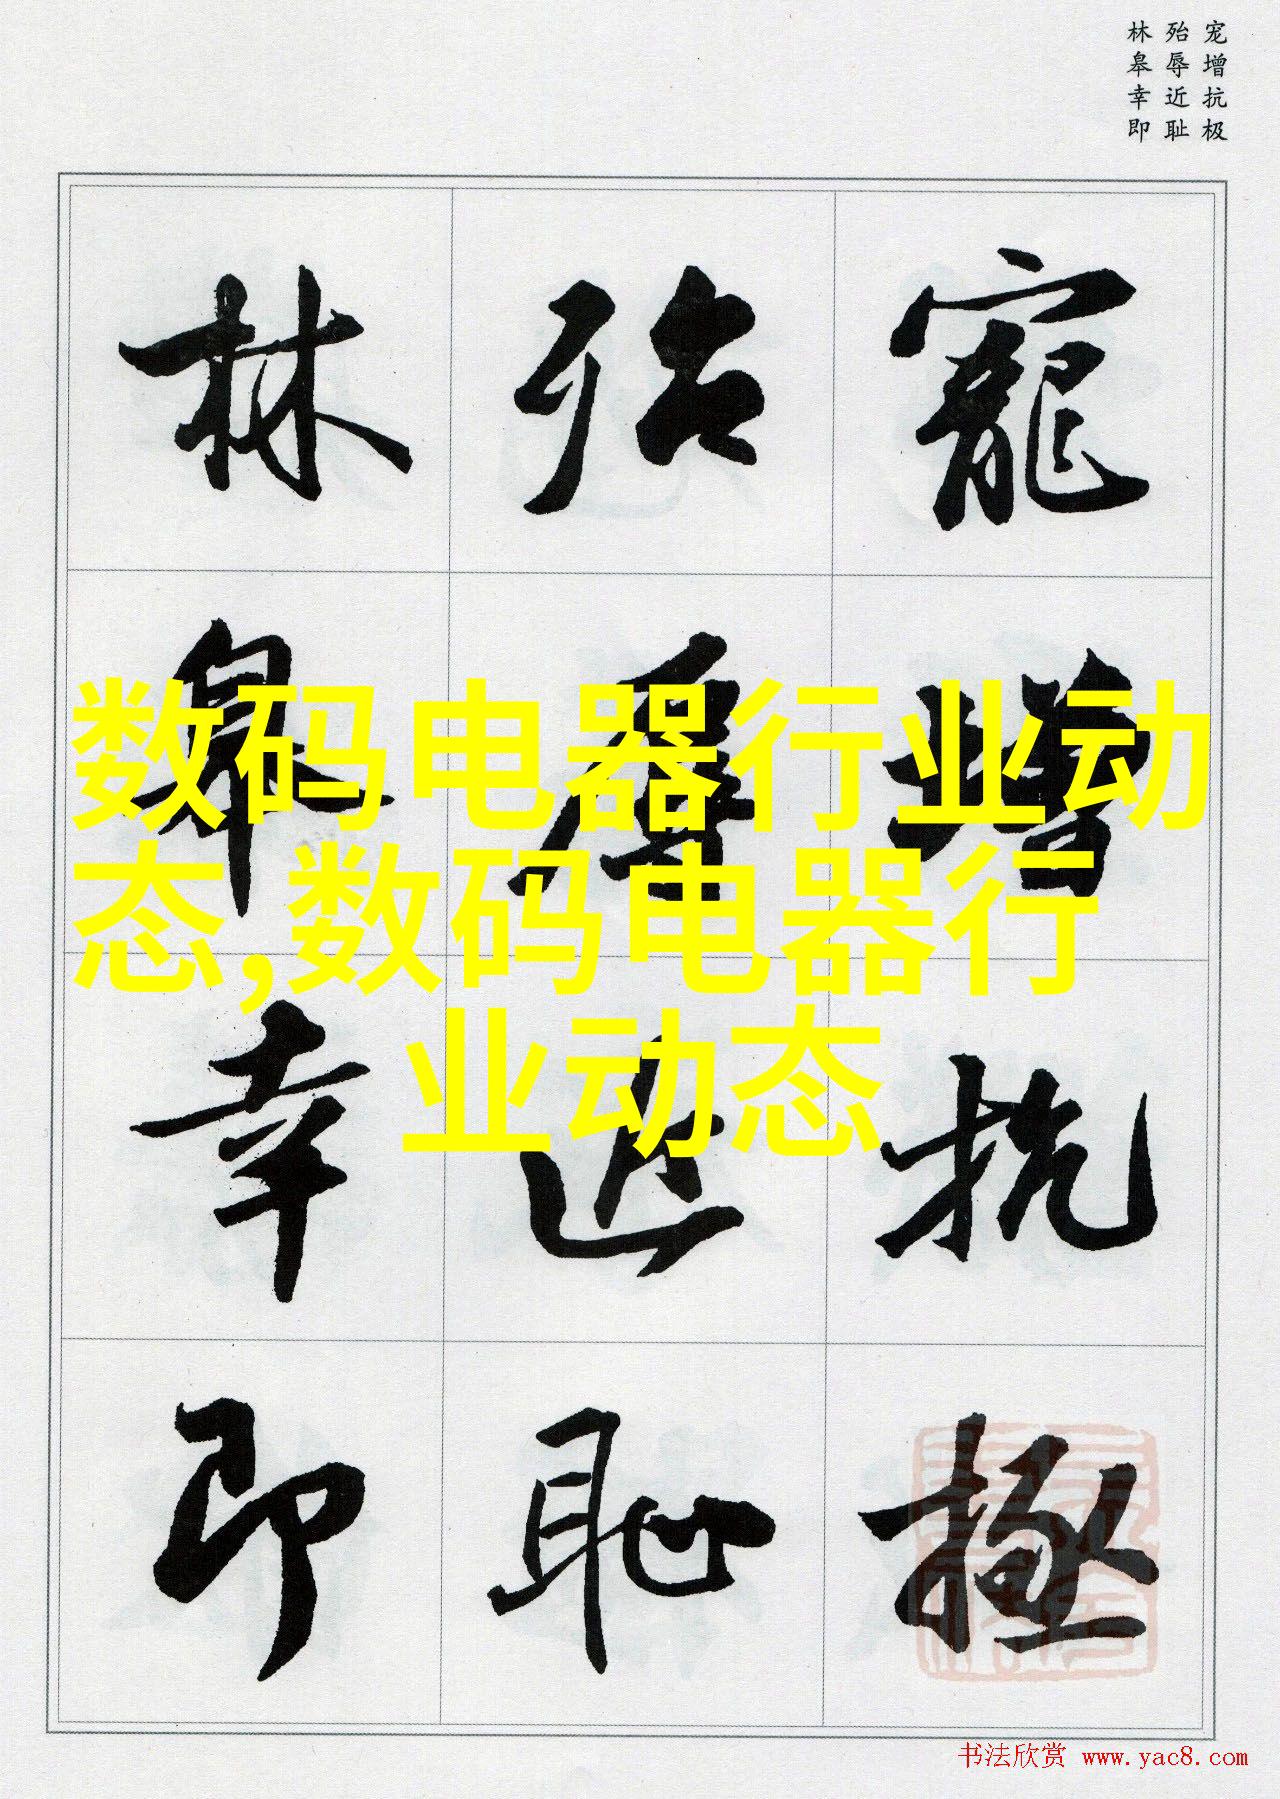 宠增抗极
殆辱近耻
林皋幸即
寵增抗極
殆辱近耻
林皋幸即
数码电器行业动
态,数码电器行
业动态
书法欣赏 www.yac8.com